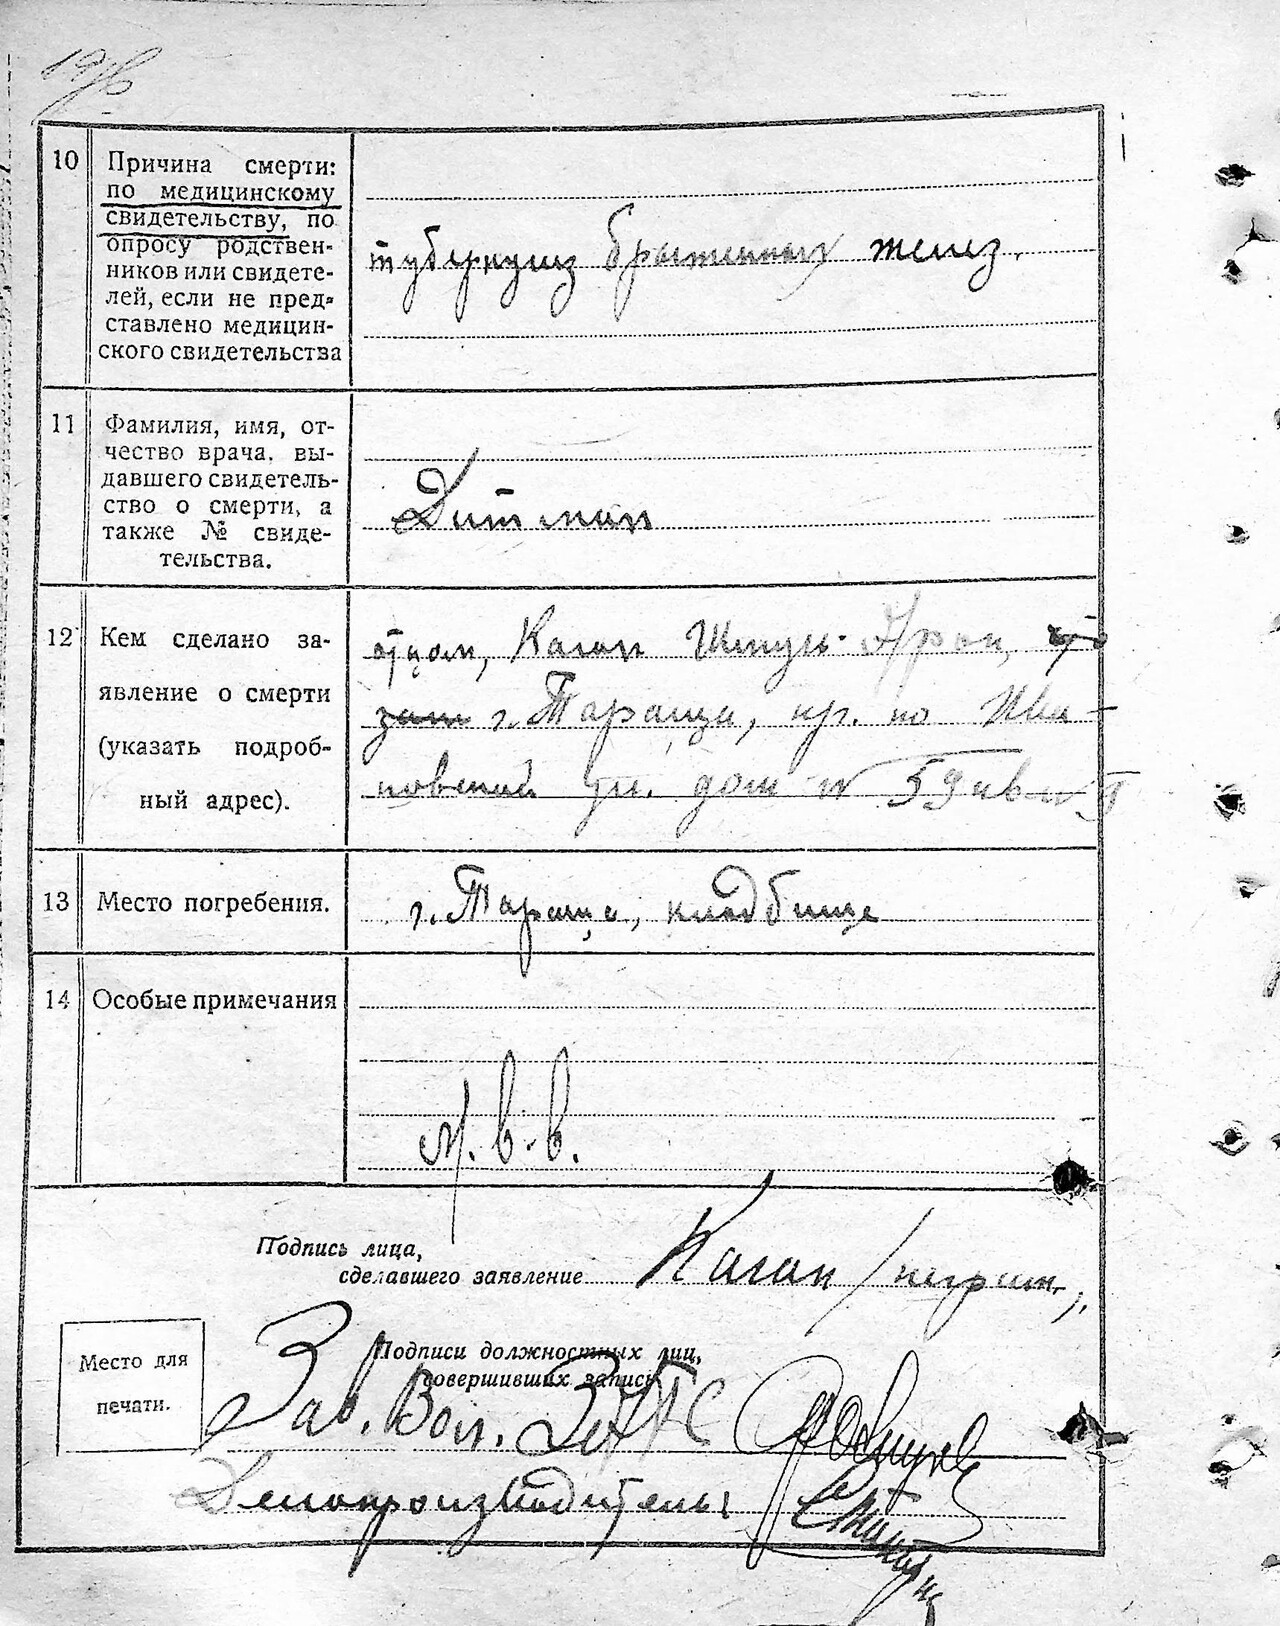 10
Причина смерти:
по медицинскому
свидетельству, по
опросу родствен-
ников или свидете-
лей, если не пред-
ставлено медицин-
ского свидетельства
туберкулез брыжеечных желез.
11
Фамилия, имя, от-
чество врача, вы-
давшего свидетель-
ство о смерти, а
также № свиде-
тельства.
Дитман
12
Кем сделано за-
явление о смерти
(указать подроб-
ный адрес).
отцом, Каган
г. Тараща, пр. по Ива-
новской ул. дом № 59 кв №
13
Место погребения.
г. Тараща, кладбище
14
Особые примечания
М. в. в.
Подпись лица,
сделавшего заявление
Каган /неграм.
Место для
печати.
Подписи должностных лиц,
совершивших запись
Зав. Вол. ЗАГС
Делопроизводитель